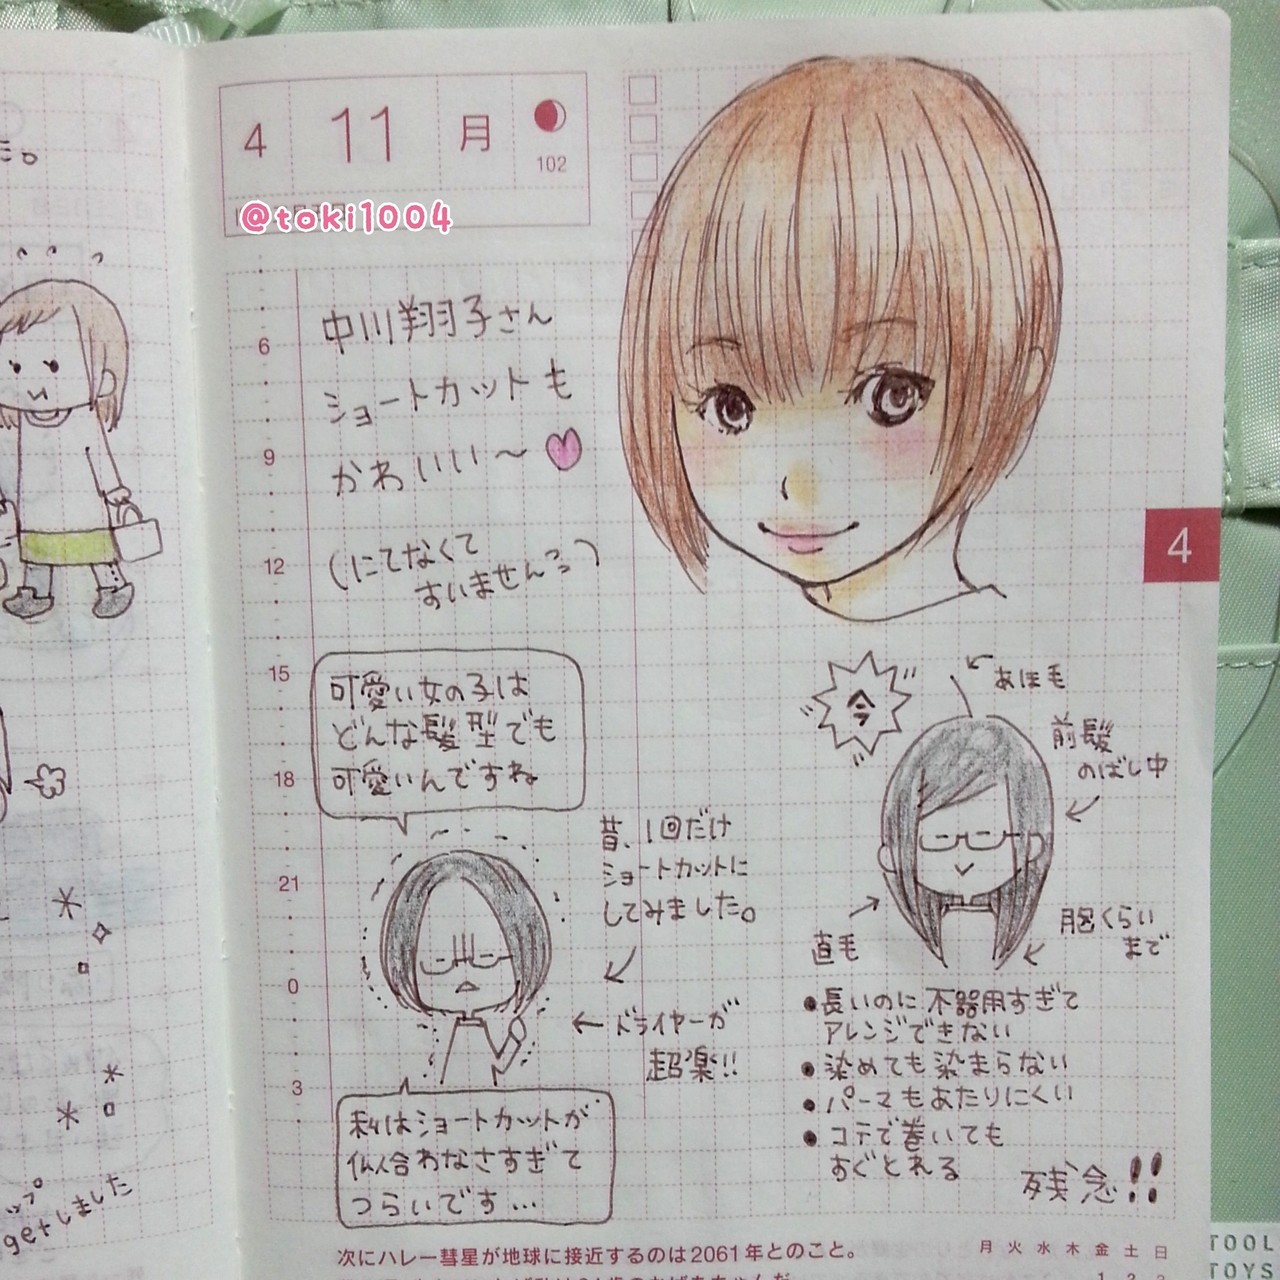 4 11 月
102
@toki1004
中川翔子さん
ショートカットも
かわいい〜
(にてなくて
すいません)
6
9
12
15
18
21
0
3
4
可愛い女の子は
どんな髪型でも
可愛いんですね
昔、1回だけ
ショートカットに
してみました。
←ドライヤーが
超楽!!
私はショートカットが
似合わなさすぎて
つらいです…
今
あほ毛
前髪
のばし中
直毛
胸くらい
まで
●長いのに不器用すぎて
アレンジできない
●染めても染まらない
●パーマもあたりにくい
●コテで巻いても
すぐとれる
残念!!
次にハレー彗星が地球に接近するのは2061年とのこと。
月 火 水 木 金 土 日
1 2 3
た。
getしました
TOOL
TOYS